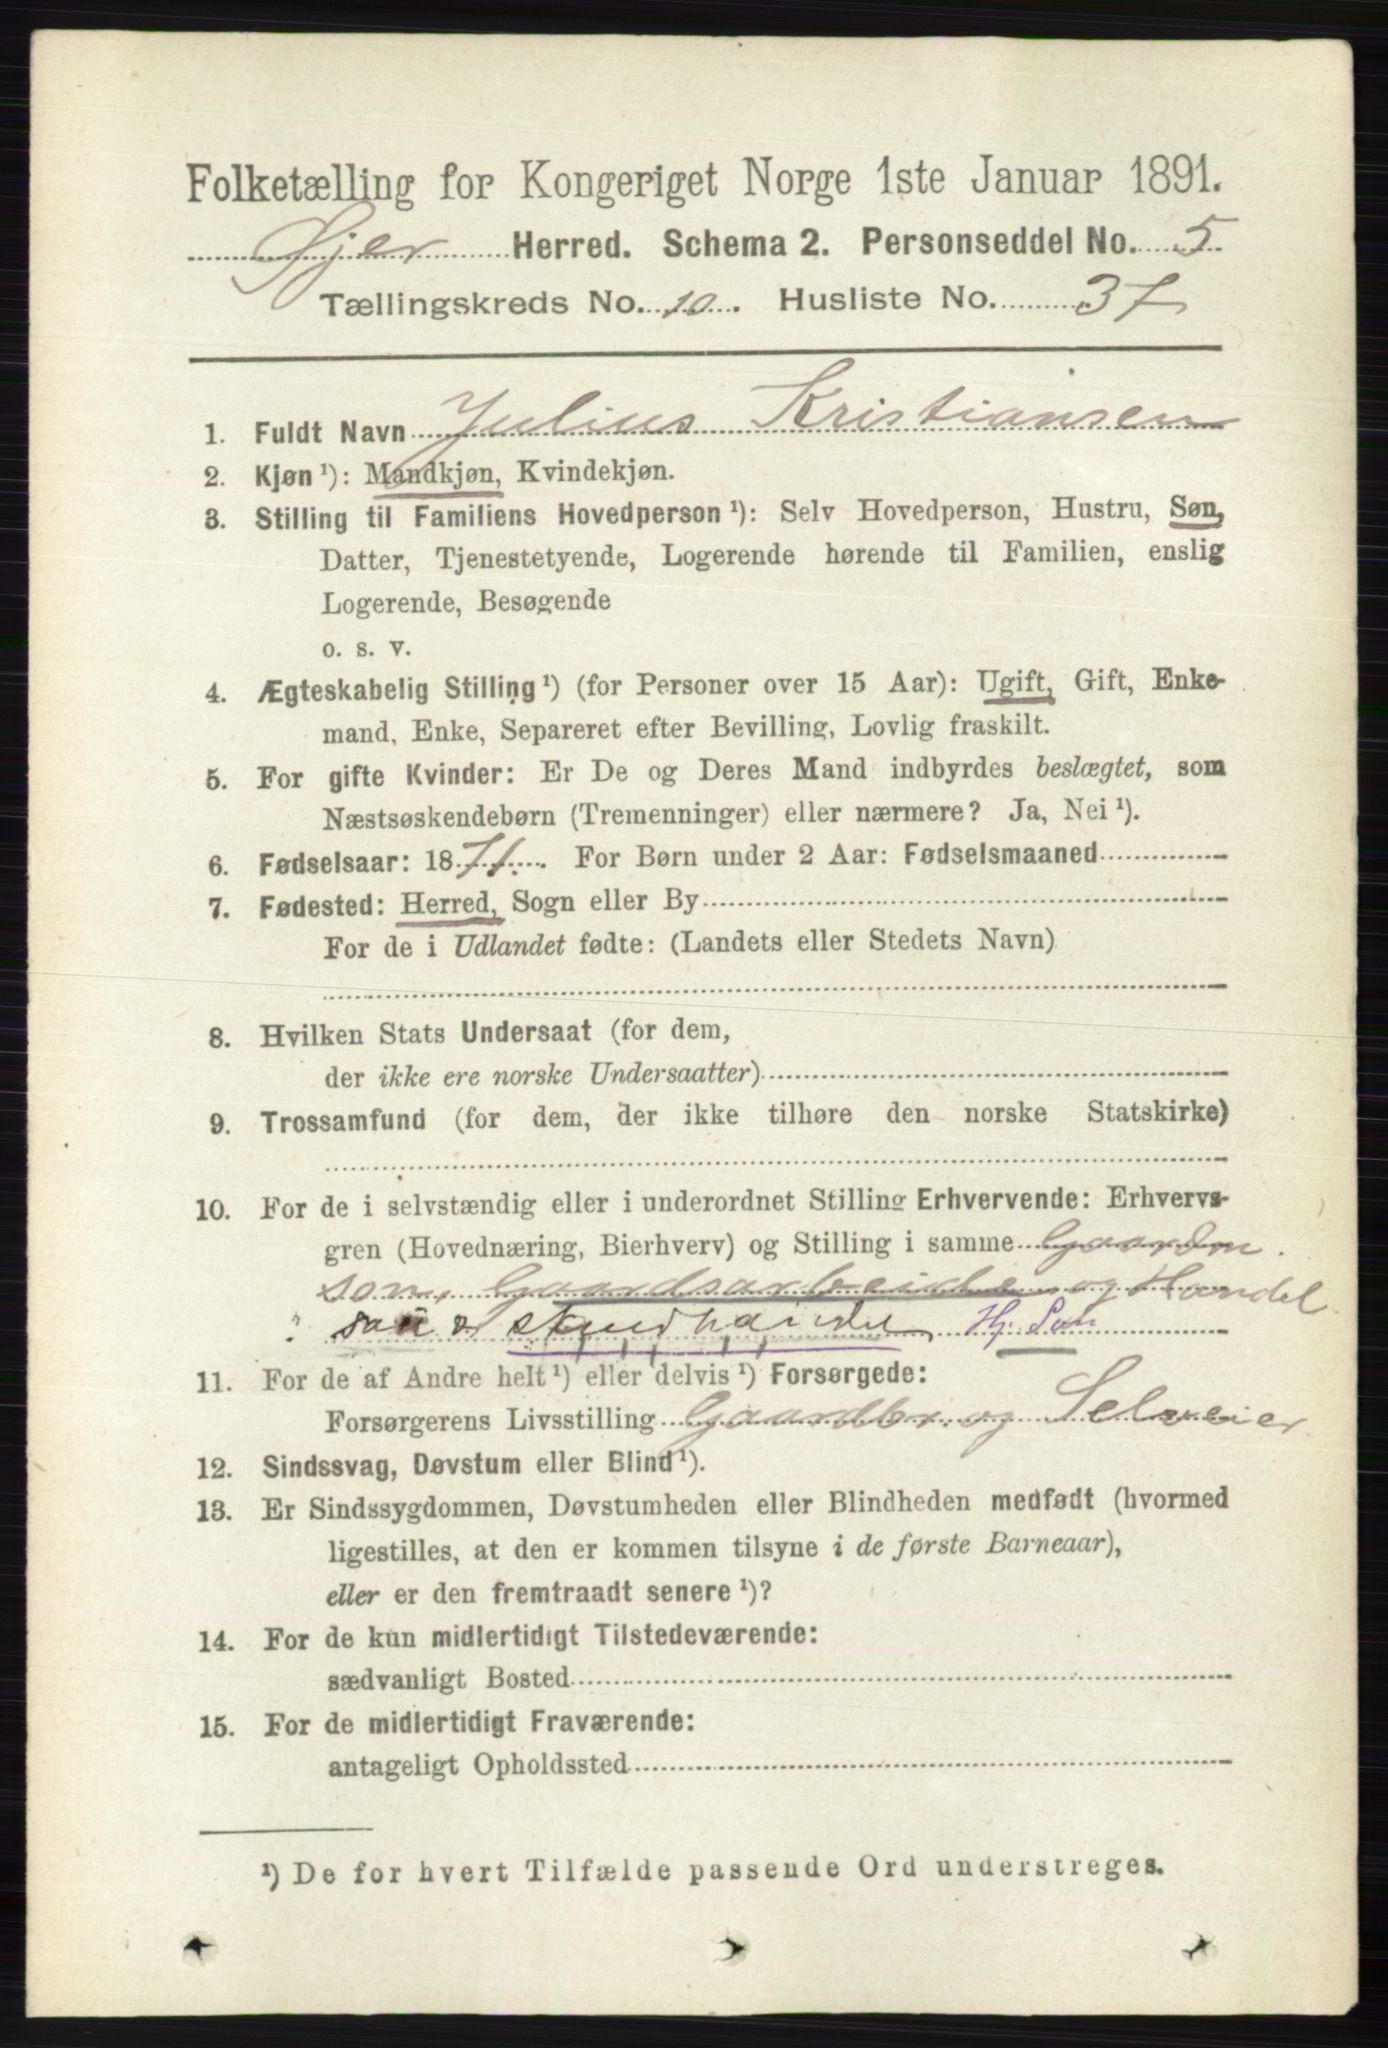 Folketælling for Kongeriget Norge 1ste Januar 1891.
Øjer Herred. Schema 2. Personseddel No. 5
Tællingskreds No. 10. Husliste No. 37
1. Fuldt Navn Julius Kristiansen
2. Kjøn ¹): Mandkjøn, Kvindekjøn.
3. Stilling til Familiens Hovedperson ¹): Selv Hovedperson, Hustru, Søn,
Datter, Tjenestetyende, Logerende hørende til Familien, enslig
Logerende, Besøgende
o. s. v.
4. Ægteskabelig Stilling ¹) (for Personer over 15 Aar): Ugift, Gift, Enke-
mand, Enke, Separeret efter Bevilling, Lovlig fraskilt.
5. For gifte Kvinder: Er De og Deres Mand indbyrdes beslægtet, som
Næstsøskendebørn (Tremenninger) eller nærmere? Ja, Nei ¹).
6. Fødselsaar: 1871. For Børn under 2 Aar: Fødselsmaaned
7. Fødested: Herred, Sogn eller By
For de i Udlandet fødte: (Landets eller Stedets Navn)
8. Hvilken Stats Undersaat (for dem,
der ikke ere norske Undersaatter)
9. Trossamfund (for dem, der ikke tilhøre den norske Statskirke)
10. For de i selvstændig eller i underordnet Stilling Erhvervende: Erhvervs-
gren (Hovednæring, Bierhverv) og Stilling i samme
søn, Gaardsarbeide og Handel
11. For de af Andre helt ¹) eller delvis ¹) Forsørgede:
Forsørgerens Livsstilling Gaardbr. og Selveier
12. Sindssvag, Døvstum eller Blind ¹).
13. Er Sindssygdommen, Døvstumheden eller Blindheden medfødt (hvormed
ligestilles, at den er kommen tilsyne i de første Barneaar),
eller er den fremtraadt senere ¹)?
14. For de kun midlertidigt Tilstedeværende:
sædvanligt Bosted
15. For de midlertidigt Fraværende:
antageligt Opholdssted
¹) De for hvert Tilfælde passende Ord understreges.